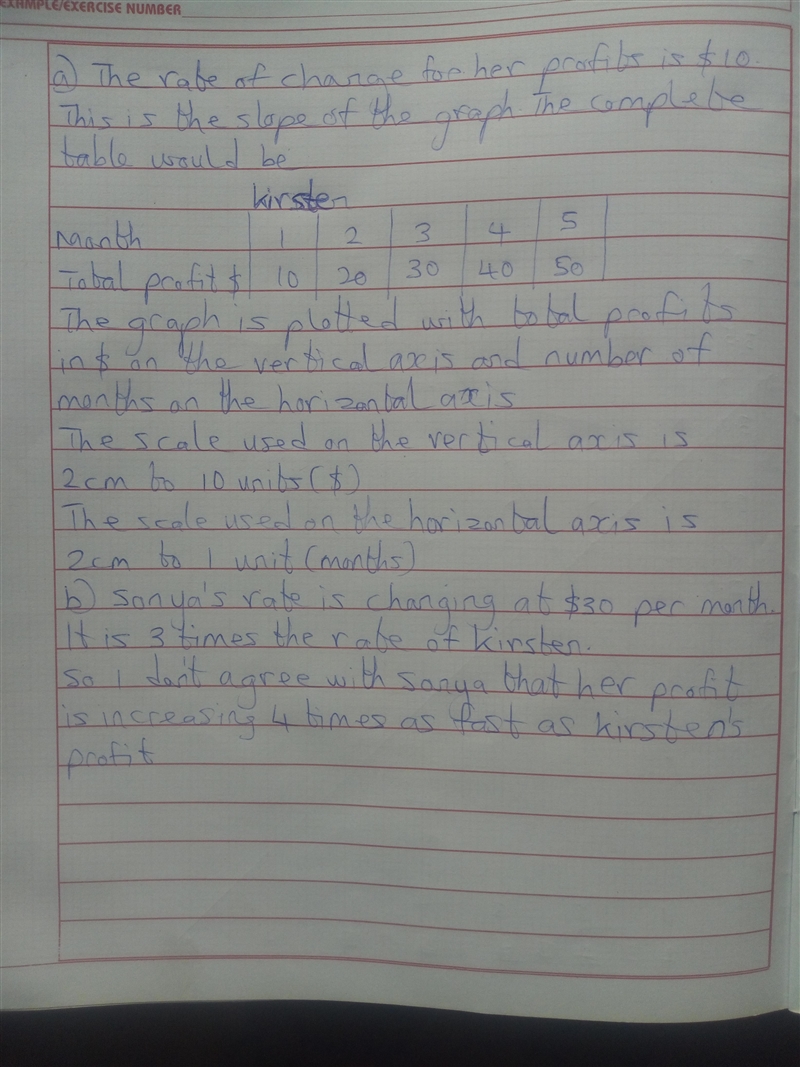 EXAMPLE/EXERCISE NUMBER
a) The rate of change for her profits is $10.
This is the slope of the graph. The complete
table would be
Kirsten
Month 1 2 3 4 5
Total profit $ 10 20 30 40 50
The graph is plotted with total profits
in $ on the vertical axis and number of
months on the horizontal axis
The scale used on the vertical axis is
2cm to 10 units ($)
The scale used on the horizontal axis is
2cm to 1 unit (months)
b) Sonya's rate is changing at $30 per month.
It is 3 times the rate of Kirsten.
So I don't agree with Sonya that her profit
is increasing 4 times as fast as Kirsten's
profit